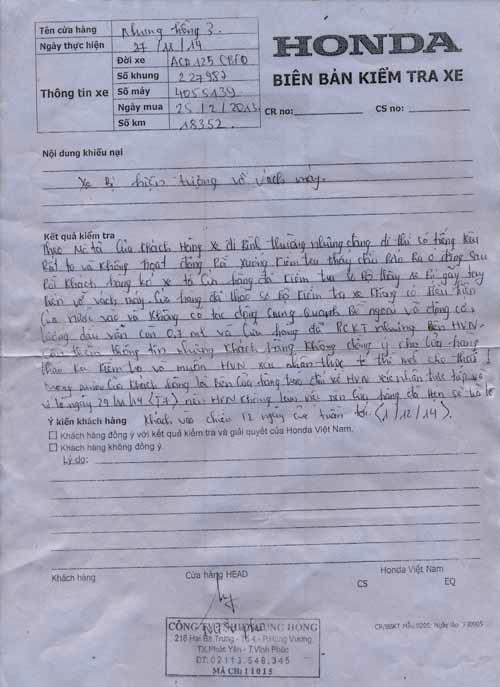 Tên cửa hàng Nhung hồng 3.
Ngày thực hiện 27/11/14
HONDA
BIÊN BẢN KIỂM TRA XE
CR no: CS no:
Thông tin xe
Đời xe ACD 125 CBFD
Số khung 227987
Số máy 4055139
Ngày mua 25/2/2013
Số km 18352.
Nội dung khiếu nại
Xe Bị hiện tượng vỡ vách máy.
Kết quả kiểm tra
Theo Mô tả Của Khách Hàng Xe đi Bình thường nhưng đang đi thì có tiếng kêu
Rất to và Không hoạt động Rồi xuống Kiểm tra thấy chảy Dầu Ra ở đằng sau
Rồi Khách hàng xe tới Cửa hàng đã Kiểm tra sơ Bộ thấy xe Bị gãy tay
biên vỡ vách máy Cửa hàng đã tháo sơ Bộ kiểm tra xe Không có
Của nước vào và Không có tác động Xung Quanh Bị ngoài và động cơ
lượng dầu vẫn còn 0,3 ml và Cửa hàng đã nhưng Bên HVN
thông tin nhưng Khách hàng Không đồng ý cho Cửa hàng
tháo Ra Kiểm tra và muốn HVN xác nhận thực tế thì mới cho tháo
Của Khách hàng là bên Cửa hàng trao đổi với HVN xác nhận trực tiếp và
ngày 29/11/14 (T7) nên HVN Không làm việc nên Cửa hàng đã Hẹn
Ý kiến khách hàng Khách vào chiều T2 ngày của tuần tới (1/12/14).
Khách hàng đồng ý với kết quả kiểm tra và giải quyết của Honda Việt Nam.
Khách hàng không đồng ý.
Lý do:
Khách hàng Cửa hàng HEAD Honda Việt Nam
CS EQ
CÔNG TY HỒNG
216 Hai Bà Trưng - Tổ 4 - P.Hùng Vương
TX.Phúc Yên - T.Vĩnh Phúc
ĐT: 02113.548.345
MÃ CH: 11015